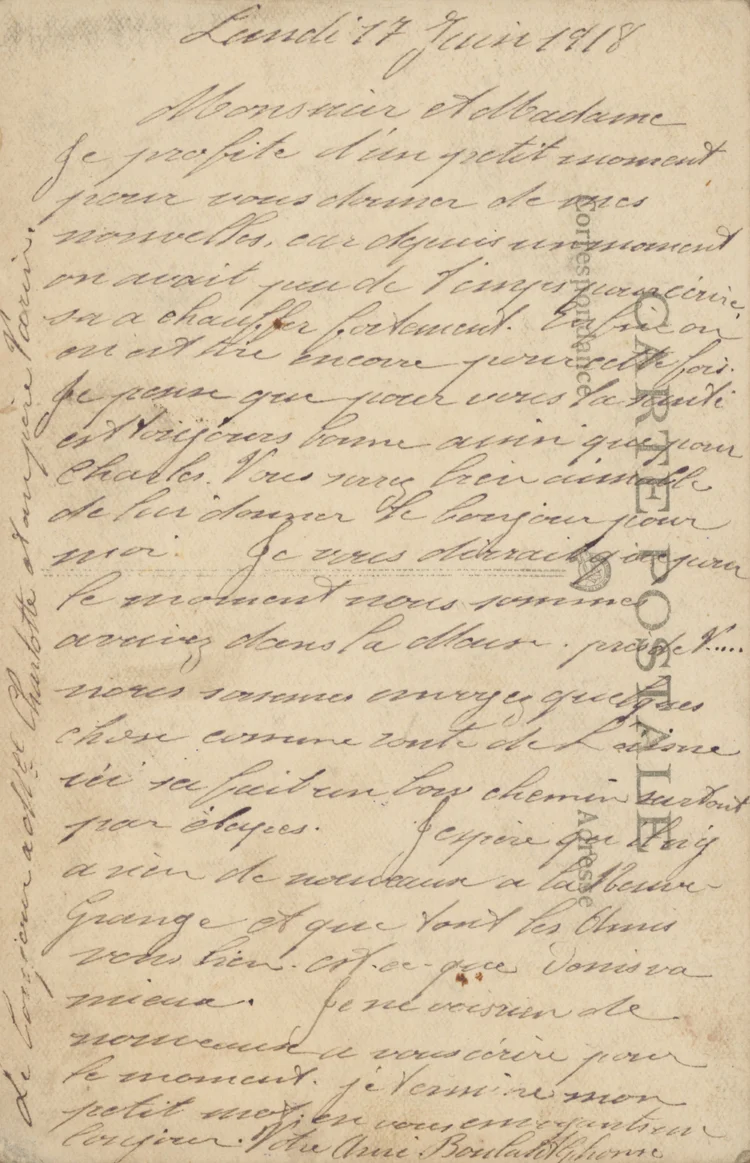 Lundi 17 Juin 1918
Monsieur et Madame
Je profite d'un petit moment
pour vous donner de mes
nouvelles, car depuis un moment
on avait peu de temps pour écrire,
sa a chauffer fortement. Enfin on
on est tire encore pour cette fois.
Je pense que pour vous la santé
est toujours bonne ainsi que pour
Charles. Vous serez bien aimable
de lui donner le bonjour pour
moi. Je vous dirrait que pour
le moment nous sommes
arrivez dans la Meuse. près de V.....
nous sommes envoyez quelques
chose comme route de l'aisne
ici sa fait un bon chemin surtout
par étapes. J'espère qu'il n'y
a rien de nouveaux a la Neuve-
Grange et que tout les Amis
vons bien. est-ce-que va
mieux. Je ne vois rien de
nouveaux a vous écrire pour
le moment. je termine mon
petit mot, en vous envoyant un
bonjour. Votre Ami
Le bonjour a Mlle Charlotte et au père
CARTE POSTALE
Correspondance
Adresse